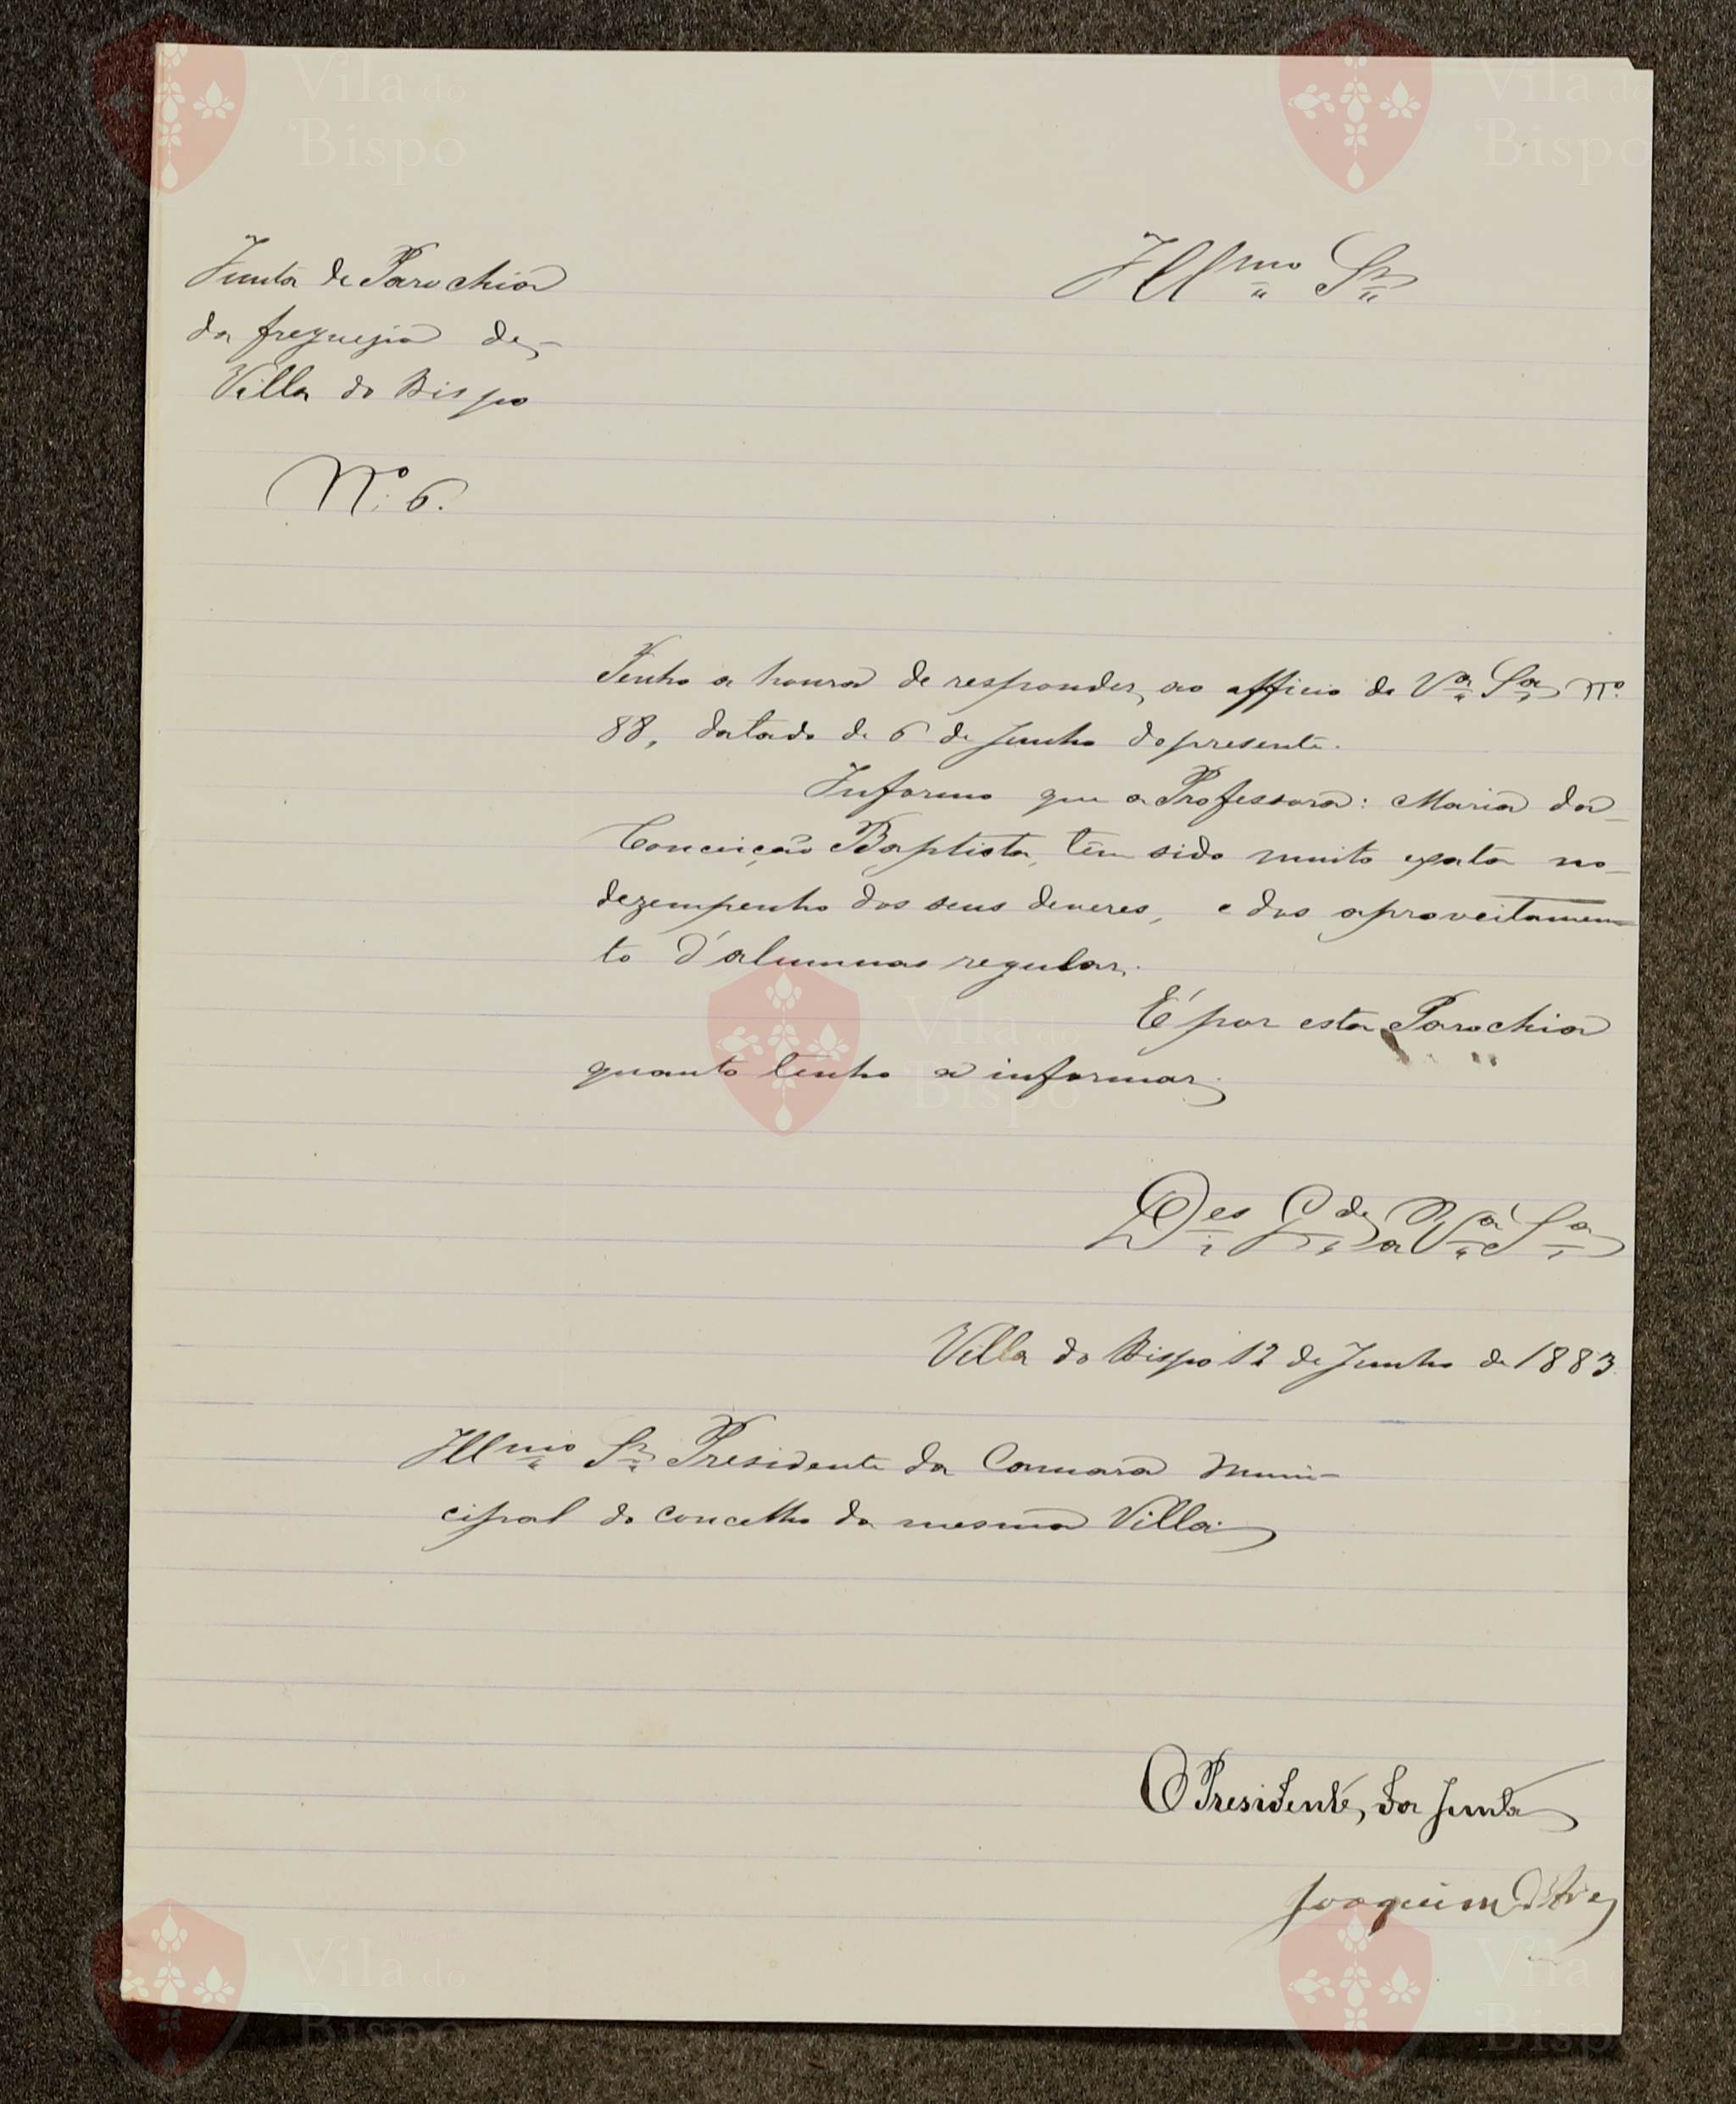 Junta de Parochia
da freguesia de
Villa do Bispo
Nº 6.
Illmo Sr
Tenho a honra de responder, ao officio de Vª Sª Nº
88, datado de 6 de Junho do presente.
Informo que a Professora: Maria da
Conceição Baptista, têm sido muito exata no
dezempenho dos seus deveres, e dos aproveitamen
to d'alumnas regular.
É por esta Parochia
quanto tenho a informar.
Des Gde a Vª Sª
Villa do Bispo 12 de Junho de 1883
Illmo Sr Presidente da Camara Muni-
cipal do concelho da mesma Villa
O Presidente, da Junta
Joaquim
Vila do
Bispo
Vila do
Bispo
Vila do
Bispo
Vila do
Bispo
Vila
Bispo